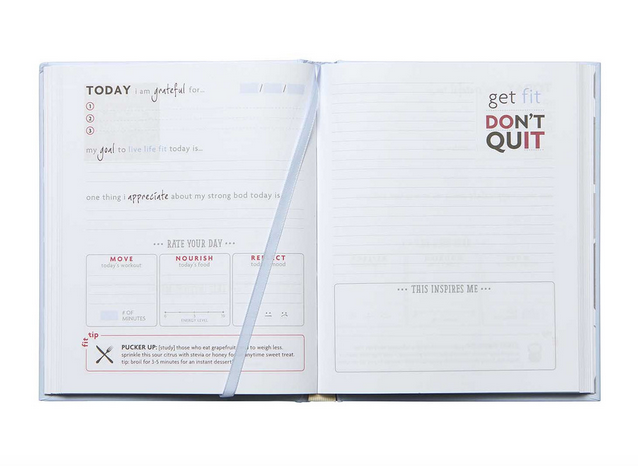 TODAY i am grateful for...
/ /
1
2
3
my goal to live life fit today is...
one thing i appreciate about my strong bod today is
••• RATE YOUR DAY •••
MOVE
today's workout
# OF
MINUTES
NOURISH
today's food
ENERGY LEVEL
fit tip
PUCKER UP: [study] those who eat grapefruit to weigh less.
sprinkle this sour citrus with stevia or honey for anytime sweet treat.
tip: broil for 3-5 minutes for an instant dessert
get fit
DON'T
QUIT
••• THIS INSPIRES ME •••